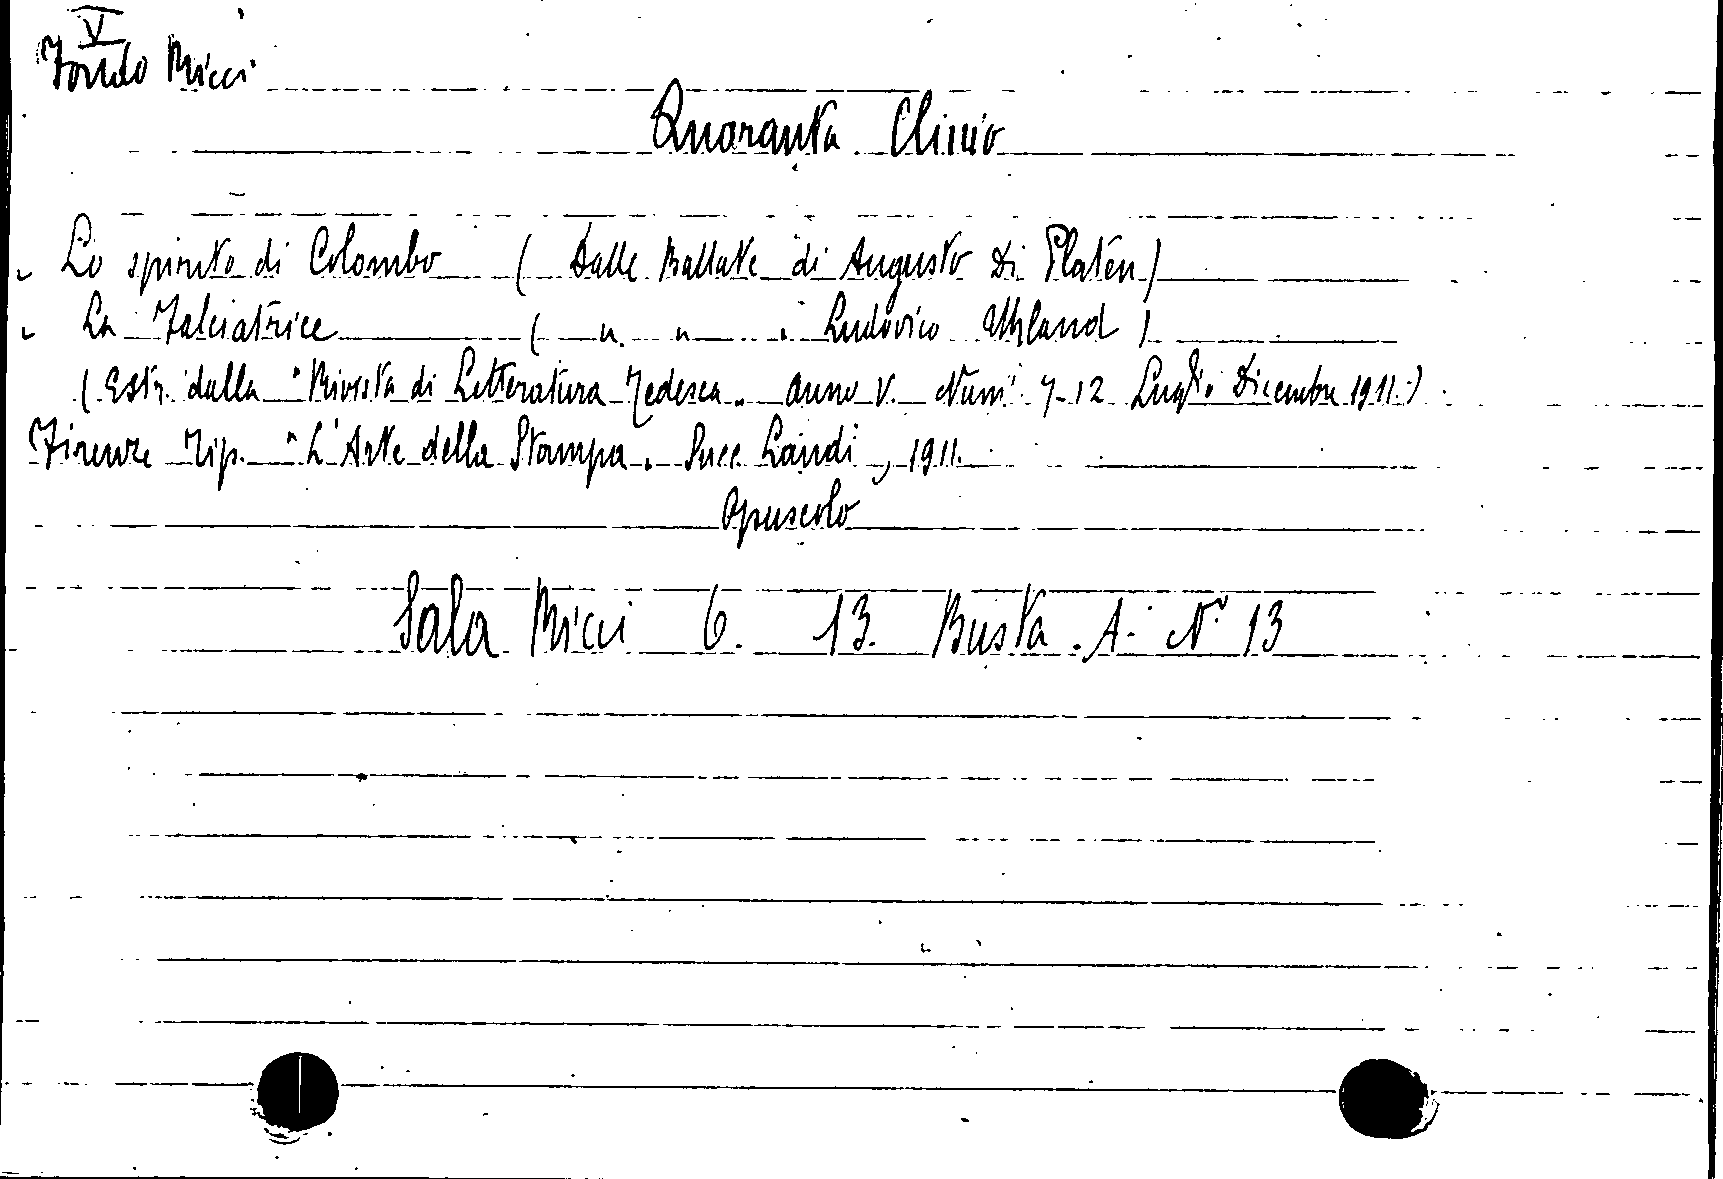 V
Fondo Ricci
Quaranta Clinio
" Lo spirito di Colombo ( Dalle Ballate di Augusto Di Platen)
" La Falciatrice ( " " " Ludovico Uhland )
( Estr. dalla "Rivista di Letteratura Tedesca" Anno V. Num. 7-12 Luglio Dicembre 1911.)
Firenze Tip. "L'Arte della Stampa" Succ. Landi, 1911.
Opuscolo
Sala Ricci 6. 13. Busta A. N° 13